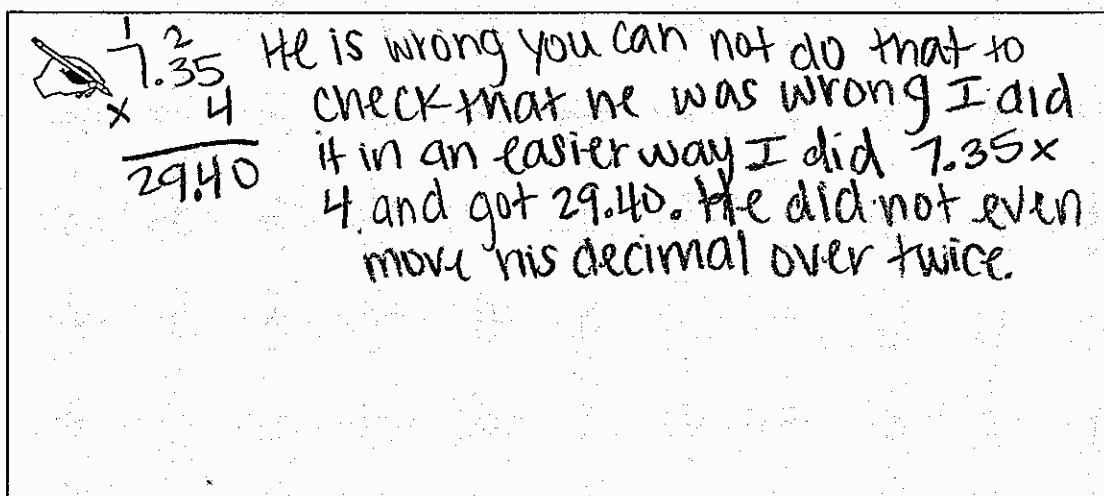 1 2
7.35
x 4
29.40
He is wrong you can not do that to
check that he was wrong I did
it in an easier way I did 7.35x
4. and got 29.40. He did not even
move his decimal over twice.